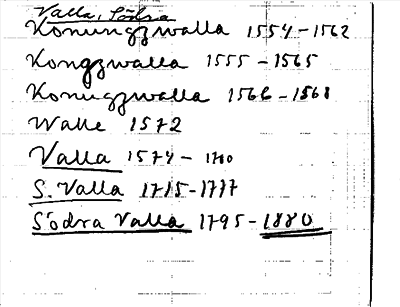 Valla, Södra
Konungzwalla 1554-1562
Kongzwalla 1555-1565
Konugzwalla 1566-1568
Walle 1572
Valla 1574-1700
S. Valla 1715-1777
Södra Valla 1795-1880